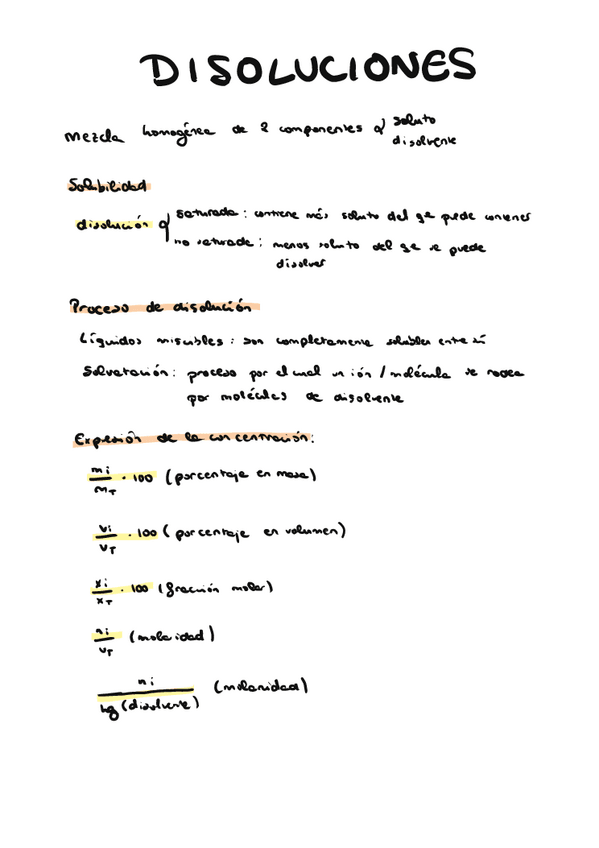 DISOLUCIONES
Mezcla homogénea de 2 componentes soluto
disolvente
Solubilidad
disolución saturada: contiene más soluto del qe puede contener
no saturada: menos soluto del qe se puede
disolver
Proceso de disolución
Líquidos miscibles: son completamente solubles entre sí
Solvatación: proceso por el cual un ión / molécula se rodea
por moléculas de disolvente
Expresión de la concentración:
mi/mT · 100 (porcentaje en masa)
vi/vT · 100 (porcentaje en volumen)
xi/xT · 100 (fracción molar)
ni/vT (molaridad)
ni/kg (disolvente) (molaridad)